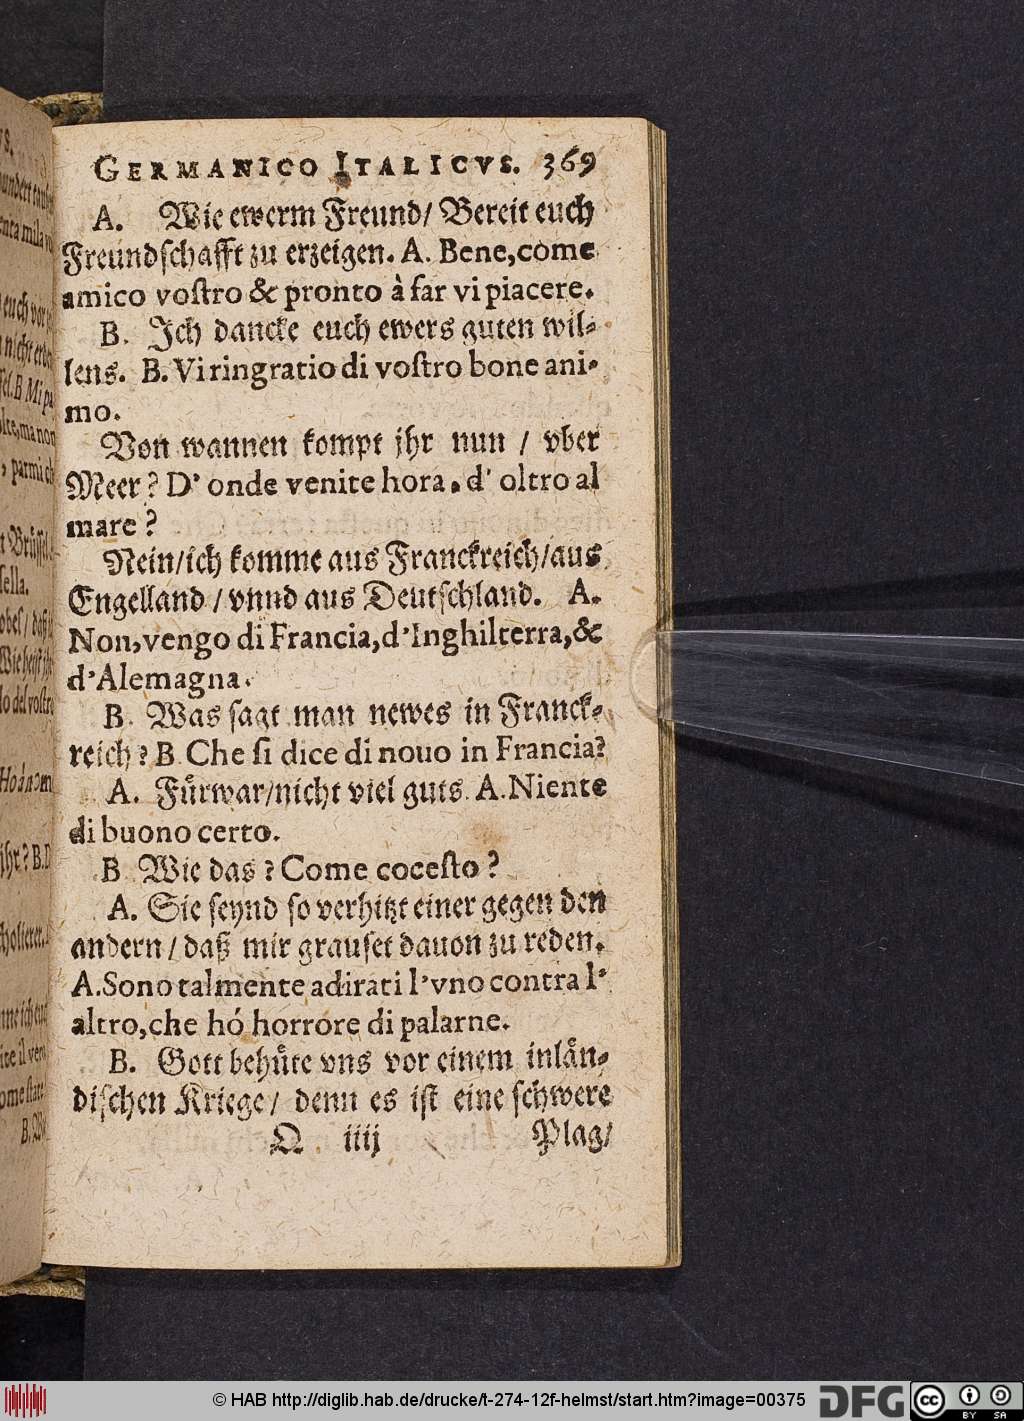 GERMANICO ITALICVS. 369
A. Wie ewerm Freund/ Bereit euch
Freundschafft zu erzeigen. A. Bene, come
amico voſtro & pronto à far vi piacere.
B. Ich dancke euch ewers guten wil⸗
lens. B. Vi ringratio di voſtro bone ani-
mo.
Von wannen kompt jhr nun / vber
Meer? D' onde venite hora. d' oltro al
mare?
Nein/ich komme aus Franckreich/aus
Engelland / vnnd aus Deutſchland. A.
Non, vengo di Francia, d'Inghilterra, &
d'Alemagna.
B. Was ſagt man newes in Franck⸗
reich? B. Che ſi dice di nouo in Francia?
A. Fuͤrwar/nicht viel guts. A. Niente
di buono certo.
B. Wie das? Come coceſto?
A. Sie ſeynd ſo verhitzt einer gegen den
andern / daß mir grauſet dauon zu reden.
A. Sono talmente adirati l'vno contra l'
altro, che hó horrore di palarne.
B. Gott behuͤte vns vor einem inlaͤn⸗
diſchen Kriege/ denn es iſt eine ſchwere
Q iiij Plag/
© HAB http://diglib.hab.de/drucke/t-274-12f-helmst/start.htm?image=00375
DFG
cc BY SA